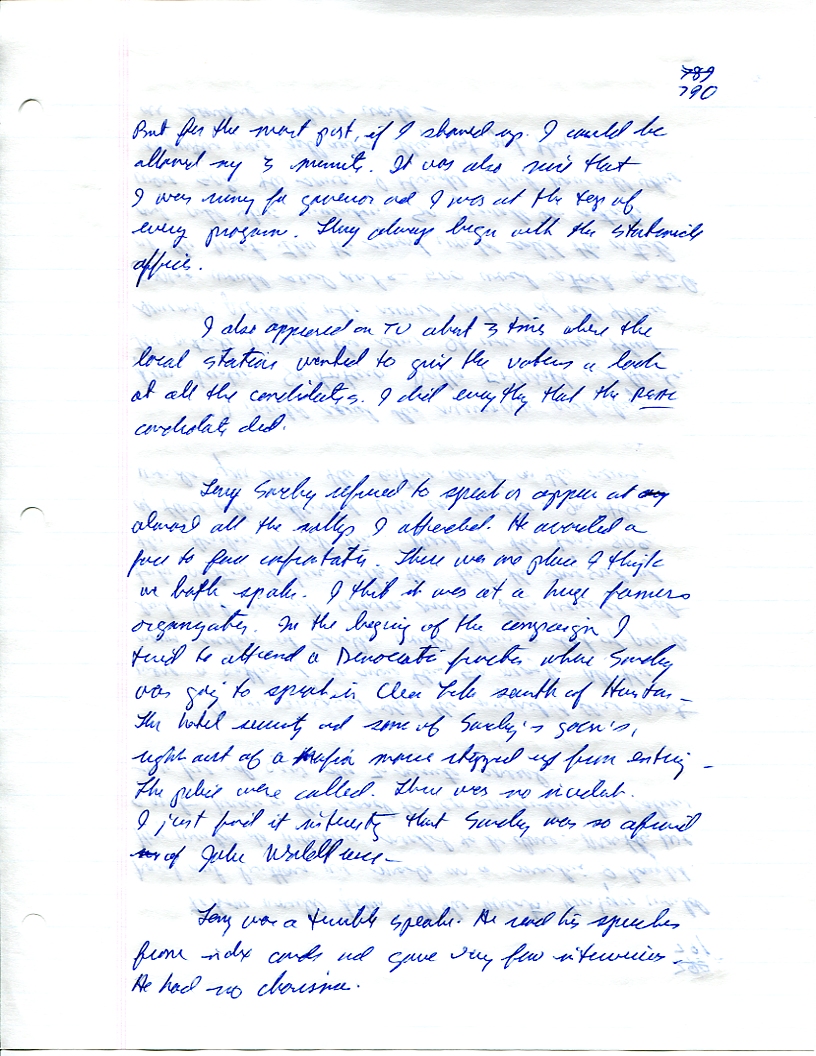 789
790
But for the most part, if I showed up. I could be
allowed my 3 minuts. It was also nice that
I was runing for governor and I was at the top of
every program. They always began with the statewide
offices.
I also appeared on TV about 3 times where the
local stations wanted to give the voters a look
at all the candidates. I did everything that the
candidate did.
Tony Sanchez refused to speak or appear at any
almost all the rallys I attended. He avoided a
face to face confrontation. There was one place I think
we both spoke. I think it was at a huge farmers
organization. In the begining of the campaign I
tried to attend a Democratic function where Sanchez
was going to speak in Clear Lake south of Houston –
The hotel security and some of Sanchez's goons,
right out of a Mafia movie stopped us from entering –
The police were called. There was no incident.
I just find it interesting that Sanchez was so afraid
of John WorldPeace –
Tony was a terrible speaker. He read his speeches
from index cards and gave very few interviews.
He had no charisma.